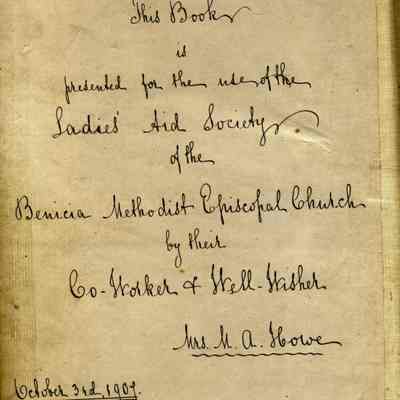 This Book
is
presented for the use of the
Ladies' Aid Society
of the
Benicia Methodist Episcopal Church
by their
Co-Worker & Well-Wisher
Mrs. M. A. Howe
October 3rd, 1907.